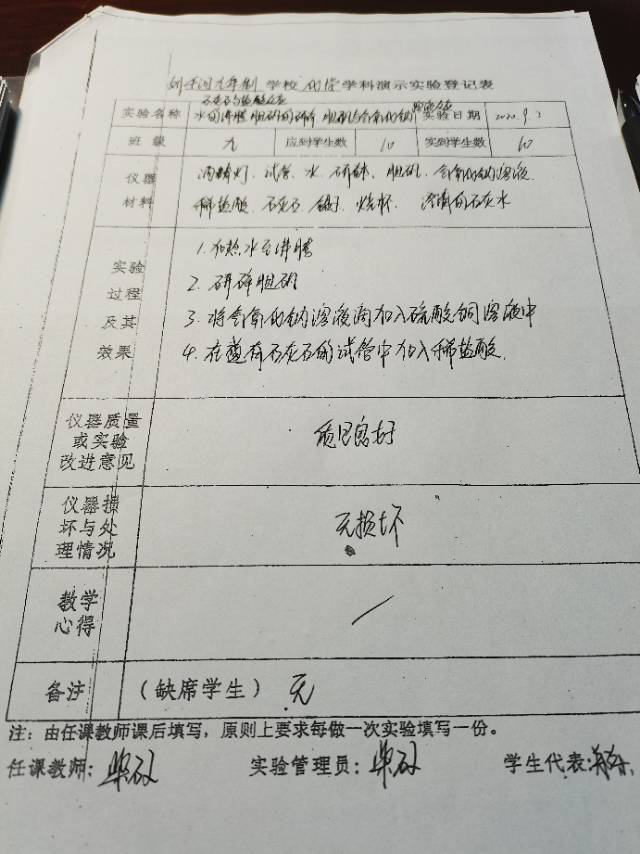 九年制 学校 化学 学科演示实验登记表
石灰石与盐酸反应
实验名称 水的沸腾 胆矾的研碎 胆矾与氢氧化钠 实验日期 2020.9.2
班级 九 应到学生数 10 实到学生数 10
仪器材料 酒精灯、试管、水、研钵、胆矾、氢氧化钠溶液
稀盐酸、石灰石、镊子、烧杯、澄清的石灰水
实验过程及其效果
1. 加热水至沸腾
2. 研碎胆矾
3. 将氢氧化钠溶液滴加入硫酸铜溶液中
4. 在盛有石灰石的试管中加入稀盐酸.
仪器质量或实验改进意见 质量良好
仪器损坏与处理情况 无损坏
教学心得 /
备注 (缺席学生) 无
注：由任课教师课后填写，原则上要求每做一次实验填写一份。
任课教师: 实验管理员: 学生代表: